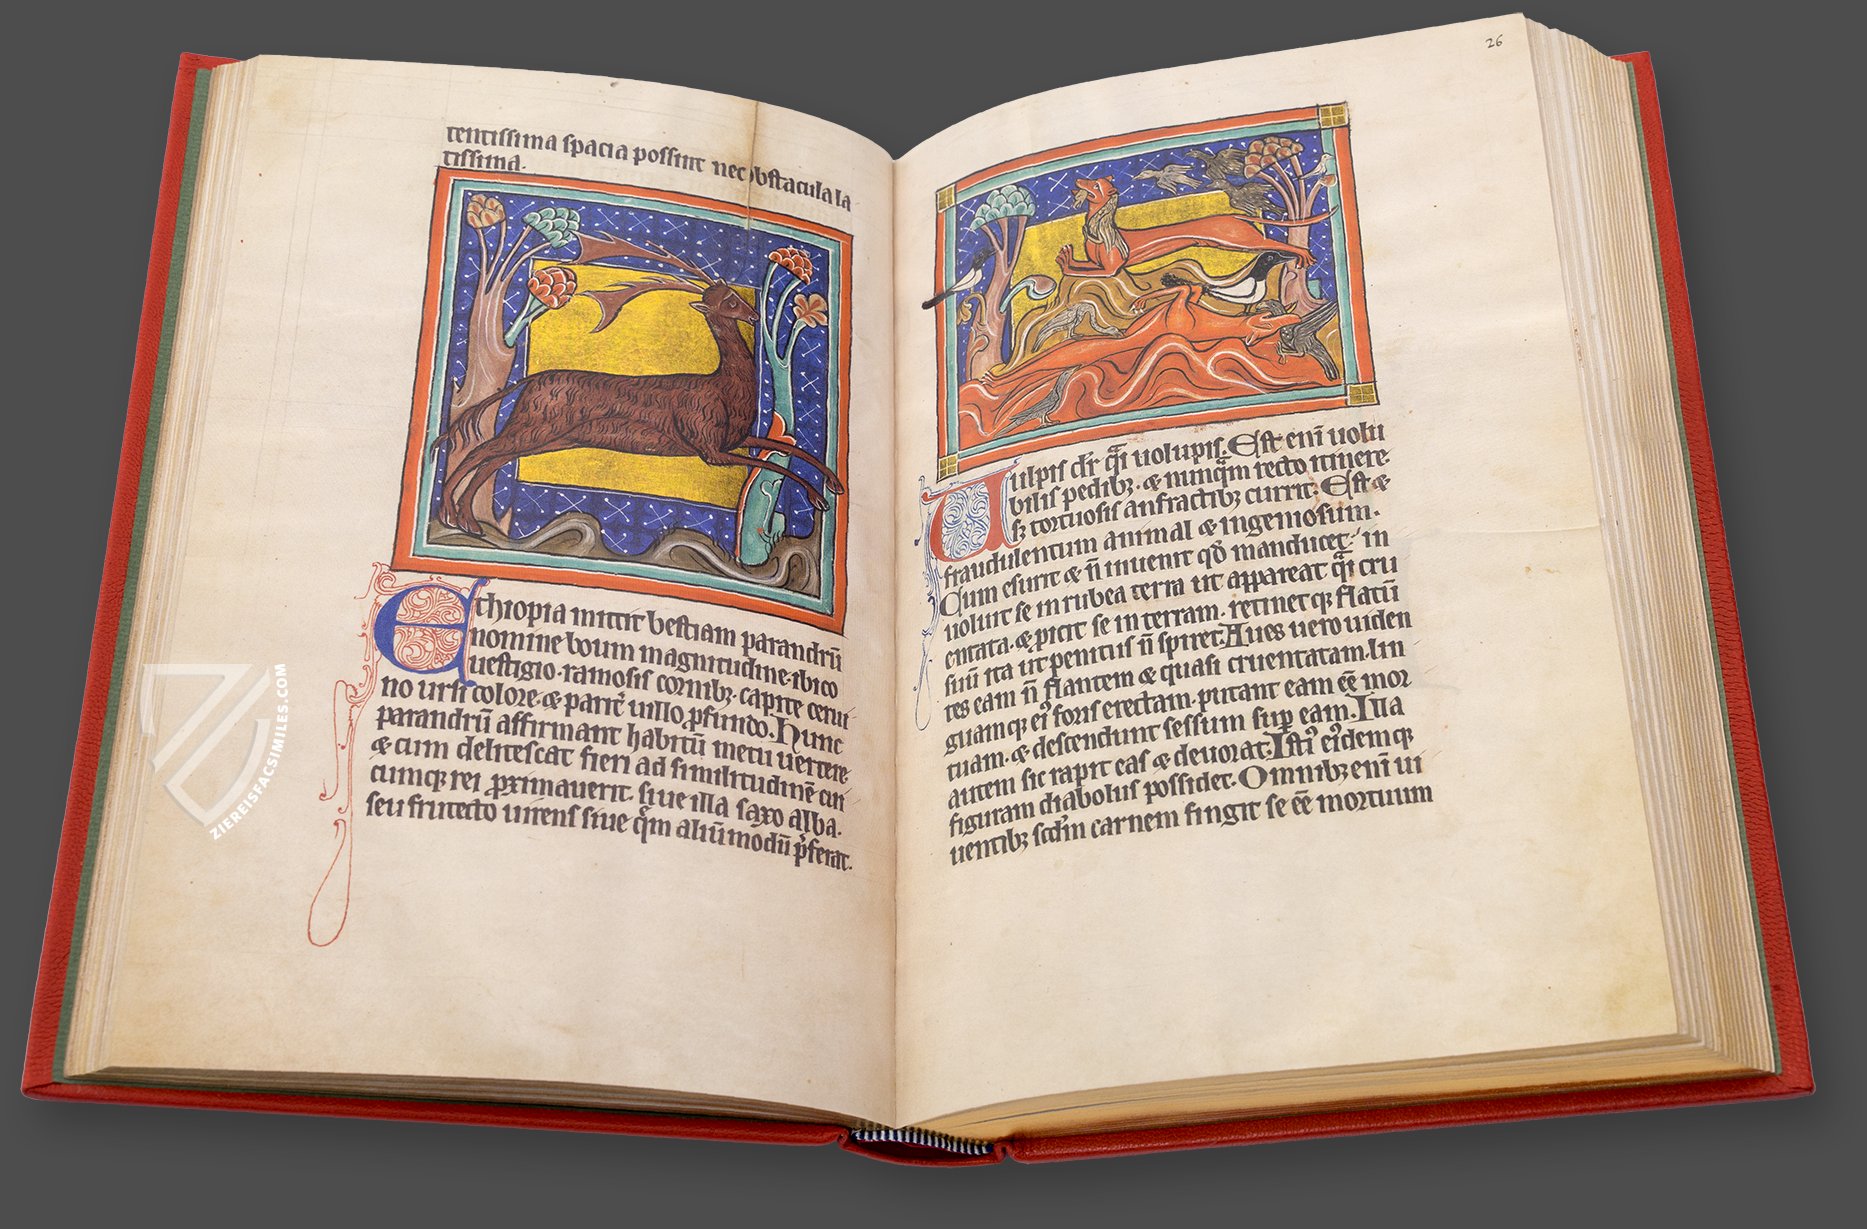 tentissima spacia possint nec obstacula la
tissima.
Ethiopia mittit bestiam parandrū
nomine boum magnitudine. ibico
uestigio. ramosis cornibꝫ. capite cerui
no ursi colore. & parit̄ uillo ꝓfundo. Hunc
parandrū affirmant habitū metu uertere.
& cum delitescat fieri ad similitudinē cui
cumqꝫ rei ꝓximauerit. siue illa saxo alba.
seu frutecto uirens siue qͣm aliū modū p̄ferat.
26
Uulpis dr̄ qͣi uolupis. Est eni uolu
bilis pedibꝫ. & nunqͣm recto itinere.
sꝫ tortuosis anfractibꝫ currit. Est &
fraudulentum animal & ingeniosum.
Cum esurit & n̄ inuenit qd̄ manducet. in
uoluit se in rubea terra ut appareat qͣi cru
entata. & ꝓicit se in terram. retinet qꝫ flatū
suū ita ut penitus n̄ spiret. Aues uero uiden
tes eam n̄ flantem & quasi cruentatam. lin
guamqꝫ eiꝰ foris erectam. putant eam eē mor
tuam. & descendunt sessum sup eam. Illa
autem sic rapit eas & deuorat. Istiꝰ eiꝰdemqꝫ
figuram diabolus possidet. Omnibꝫ eni ui
uentibꝫ scd̄m carnem fingit se eē mortuum
ZIEREISFACSIMILES.COM